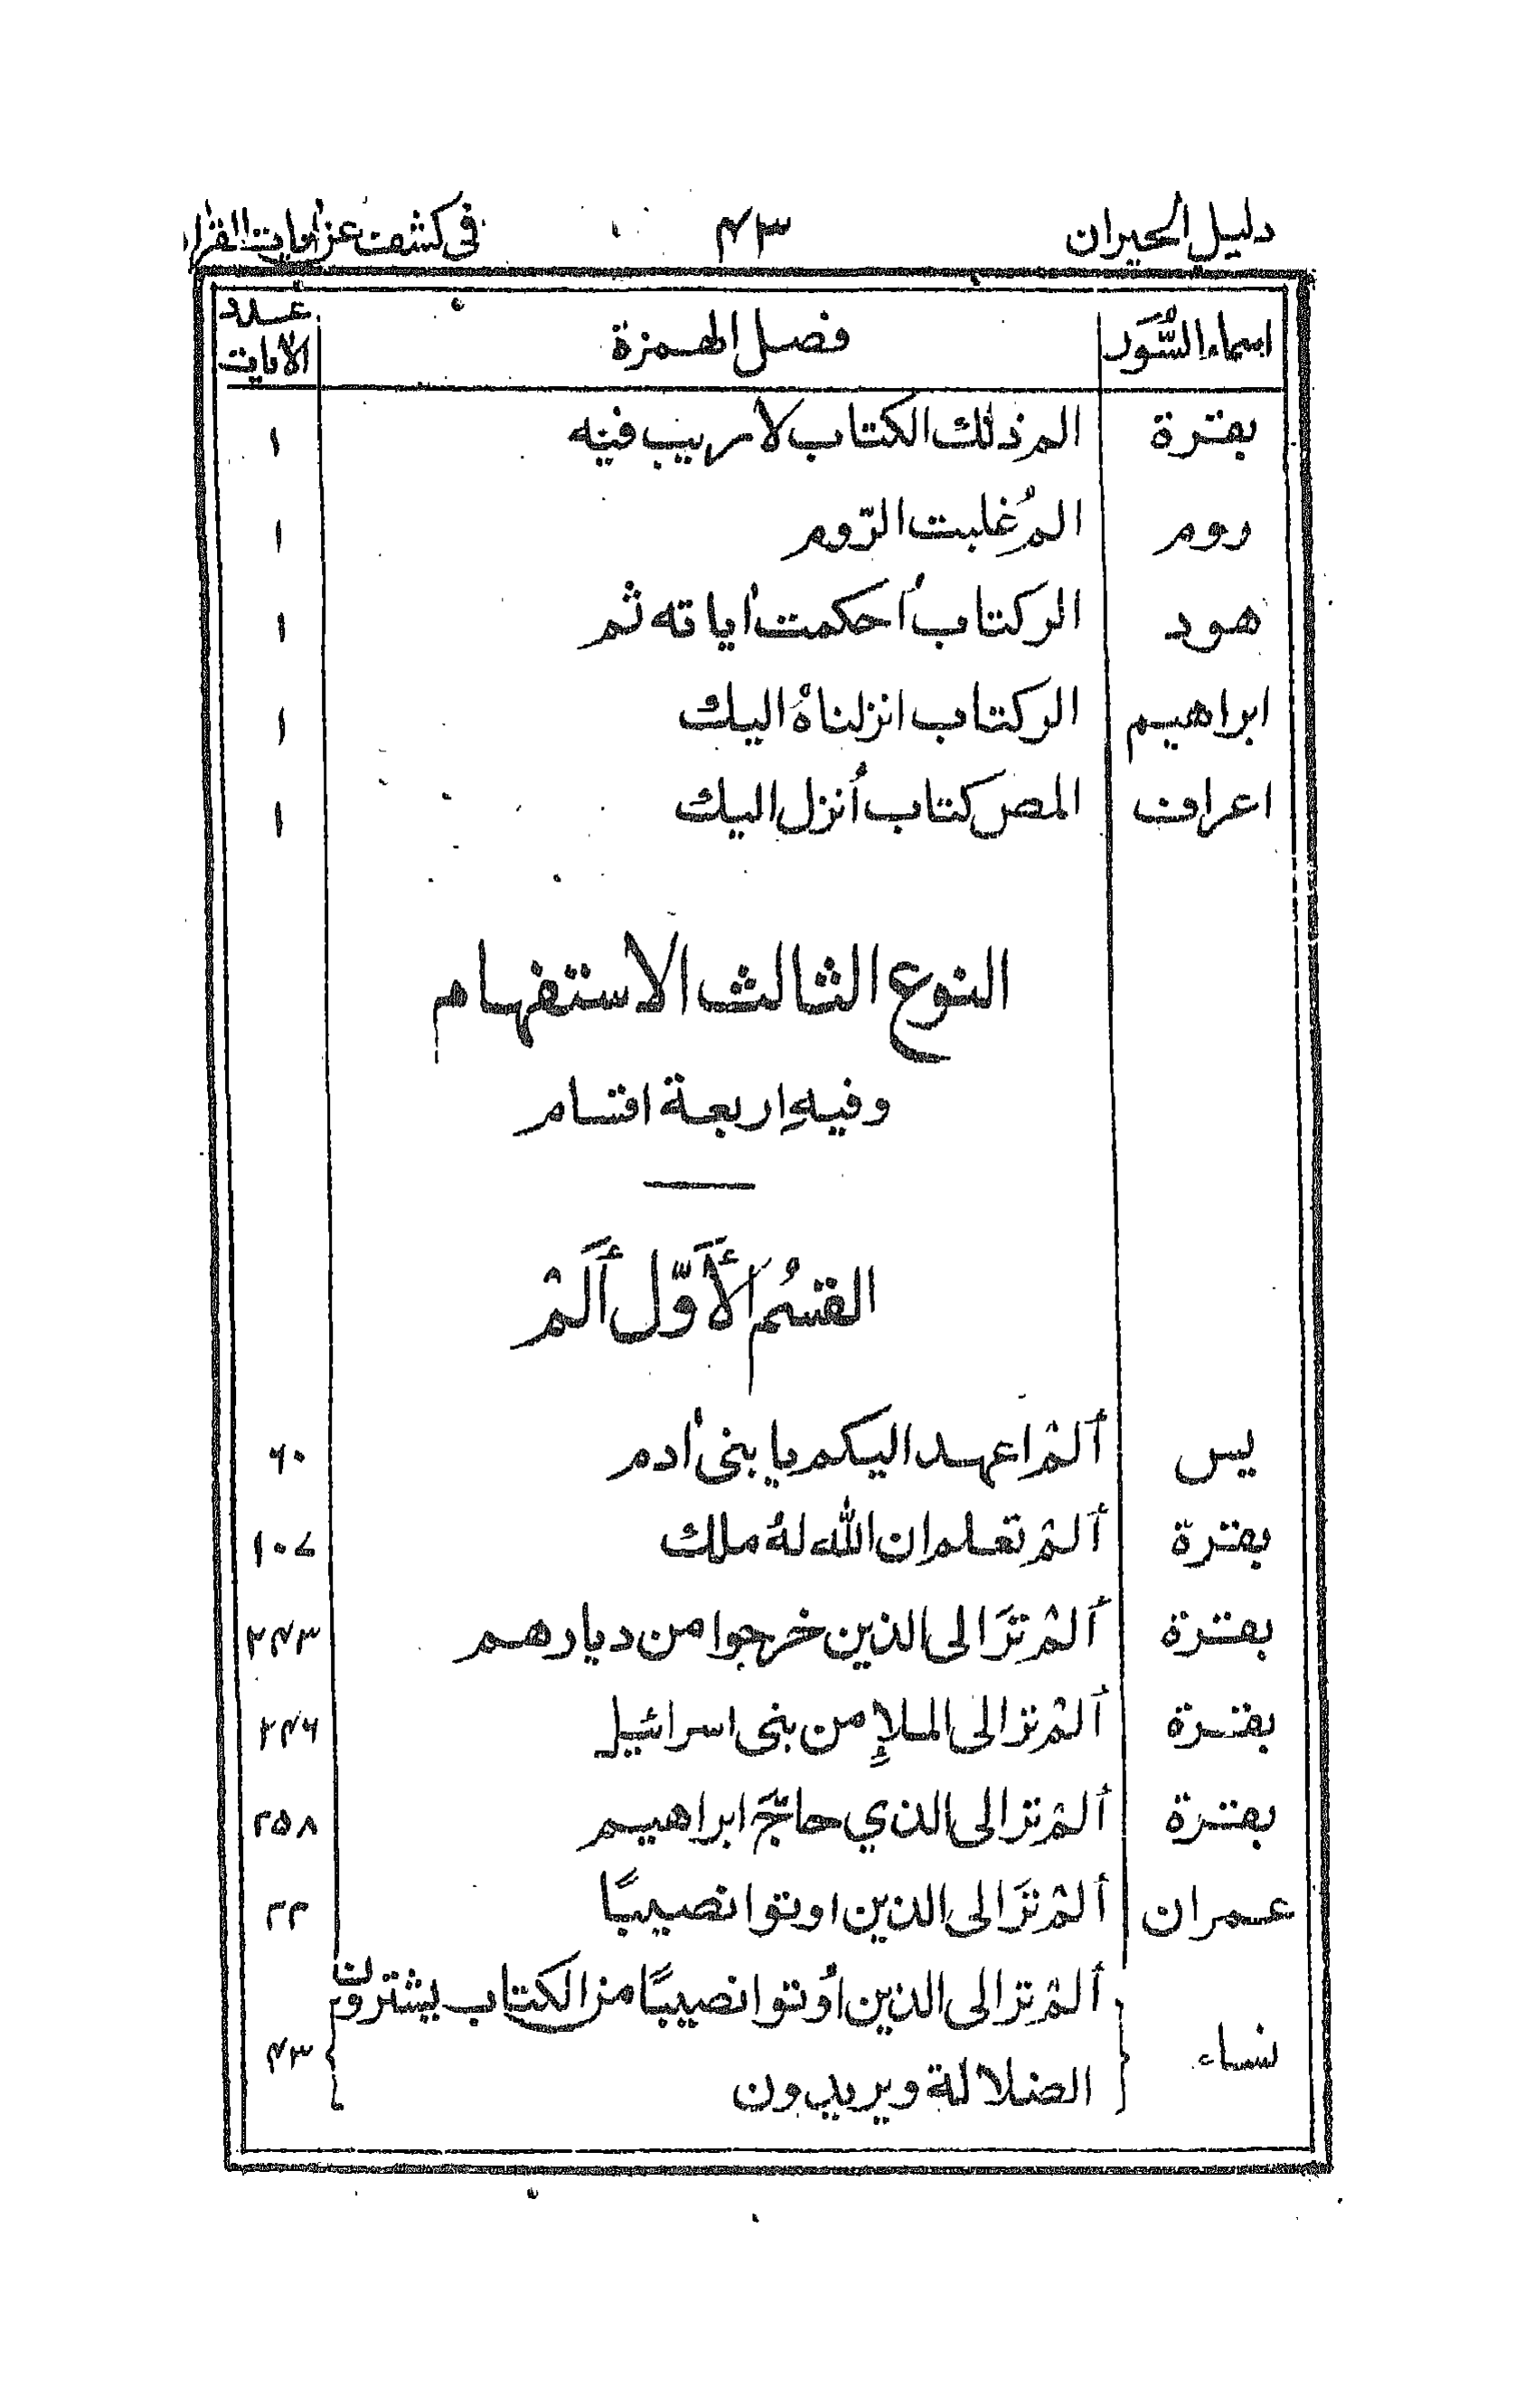 دليل الحيران ٤٣ فى كشف عن اٰيات القراٰن
اسماء السُّوَر فصل الهمزة عدد الاٰيات
بقرة الم ذٰلك الكتاب لا ريب فيه ١
روم المۤ غلبت الرّوم ١
هود الر كتاب اُحكمت اٰياته ثم ١
ابراهيم الر كتاب انزلناهُ اليك ١
اعراف المص كتاب اُنزل اليك ١
النوع الثالث الاستفهام
وفيهِ اربعة اقسام
القسمُ الأَوّل أَلَمْ
يس ألمْ اعهد اليكم يا بنى اٰدم ٦٠
بقرة ألمْ تعلم ان الله لهُ ملك ١٠٧
بقرة ألمْ ترَ الى الذين خرجوا من ديارهم ٢٤٣
بقرة ألمْ تر الى الملإِ من بنى اسرائيل ٢٤٦
بقرة ألمْ تر الى الذي حاجَّ ابراهيم ٢٥٨
عمران ألمْ ترَ الى الذين اوتوا نصيبًا ٢٢
نساء ألمْ تر الى الذين اُوتوا نصيبًا من الكتاب يشترون ٤٣
الضلالة ويريدون